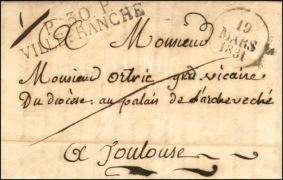 P. 30. P.
VILLEFRANCHE
19
MARS
1831
Monsieur
Monsieur ortric grd vicaire
Du diocèse au palais de l'archeveché
a Toulouse